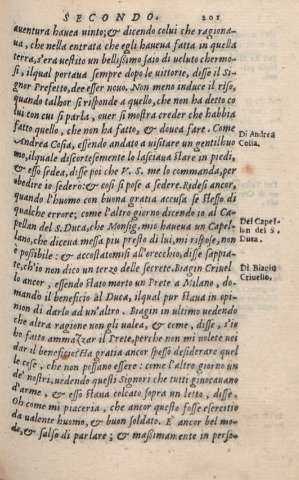 SECONDO. 201
auentura hauea uinto; & dicendo colui che ragiona-
ua, che nella entrata che egli haueua fatta in quella
terra, s'era uestito un bellissimo saio di ueluto chermo-
si, ilqual portaua sempre dopo le uittorie, disse il Si-
gnor Prefetto, dee esser nouo. Non meno induce il riso,
quando talhor si risponde a quello, che non ha detto co
lui con cui si parla, ouer si mostra creder che habbia
fatto quello, che non ha fatto, & douea fare. Come
Andrea Cosia, essendo andato a uisitare un gentilhuo
mo, ilquale discortesemente lo lasciaua stare in piedi,
& esso sedea, disse poi che V. S. me lo commanda, per
obedire io sederò: & cosi si pose a sedere. Ridesi ancor,
quando l'huomo con buona gratia accusa se stesso di
qualche errore; come l'altro giorno dicendo io al Ca-
pellan del S. Duca, che Monsig. mio haueua un Capel-
lano, che diceua messa piu presto di lui, mi rispose, non
è possibile: & accostatomisi all'orecchio, disse sappia-
te, ch'io non dico un terzo delle secrete. Biagin Criuel
lo ancor, essendo stato morto un Prete a Milano, do-
mandò il beneficio al Duca, ilqual pur staua in opi-
nion di darlo ad un'altro. Biagin in ultimo uedendo
che altra ragione non gli ualea, & come, disse, s'io
ho fatto ammazzar il Prete, perche non mi uolete uoi
dar il beneficio? Ha gratia ancor spesso desiderare quel
le cose, che non possano essere: come l'altro giorno un
de' nostri, uedendo questi Signori che tutti giuocauano
d'arme, & esso staua colcato sopra un letto, disse.
Oh come mi piaceria, che ancor questo fosse esercitio
da ualente huomo, & buon soldato. E' ancor bel mo-
do, & salso di parlare; & massimamente in perso-
Di Andrea
Cosia.
Del Capel-
lan del S.
Duca.
Di Biagin
Criuello.